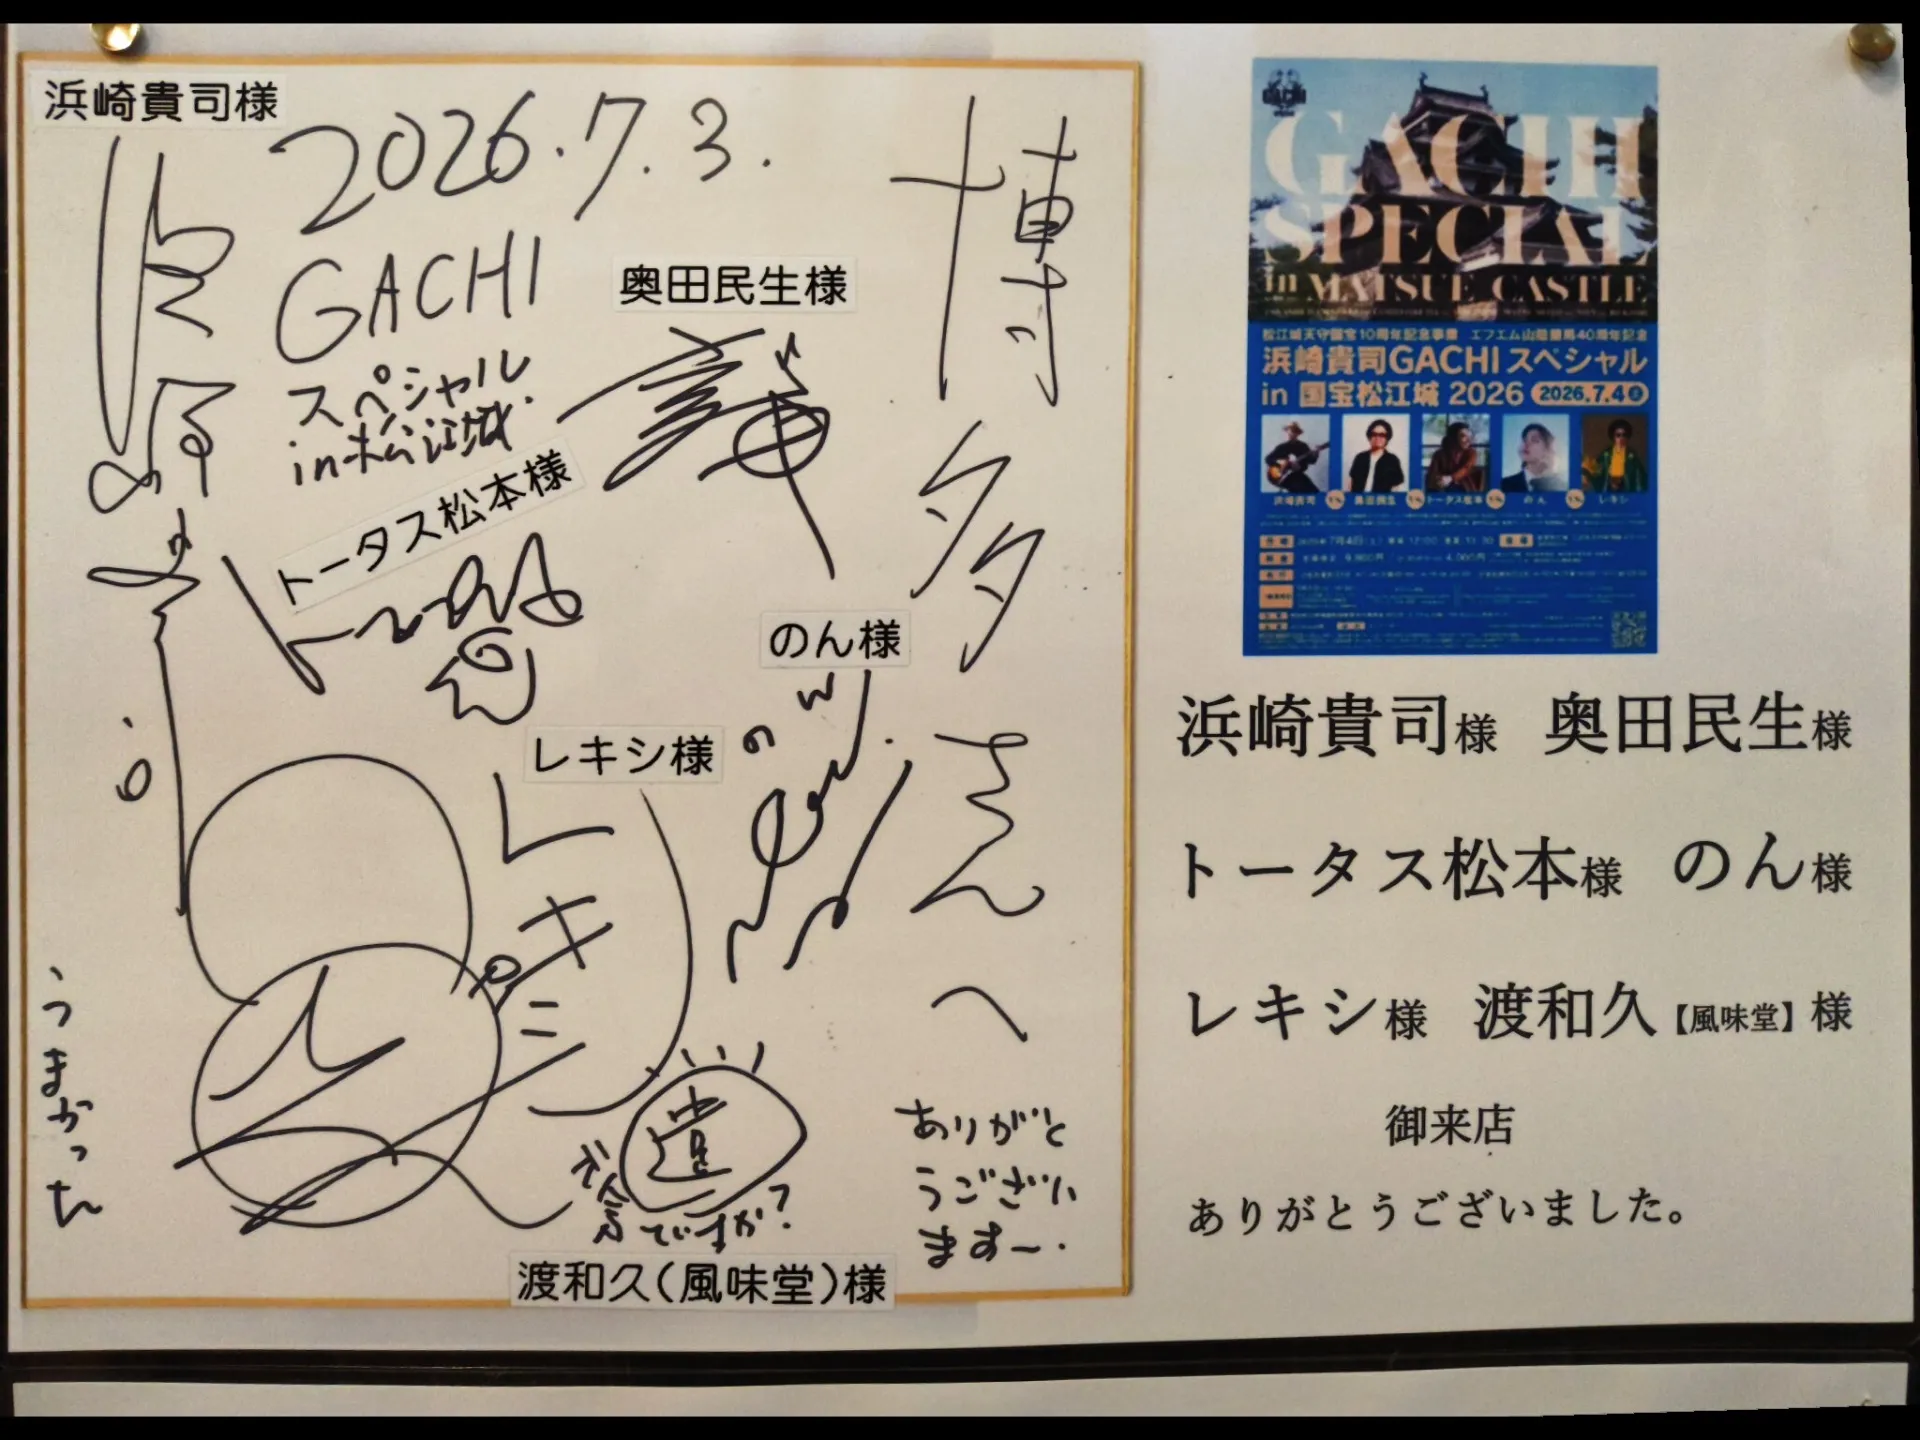 浜崎貴司様
2026.7.3.
GACHI
スペシャル
in松江城.
奥田民生様
トータス松本様
のん様
のん
レキシ様
レキシ
うまかった
渡和久(風味堂)様
ですか?
博多さんへ
ありがと
うござい
ます〜.
GACHI
SPECIAL
in MATSUE CASTLE
松江城天守国宝10周年記念事業 エフエム山陰開局40周年記念
浜崎貴司GACHIスペシャル
in 国宝松江城 2026 2026.7.4土
浜崎貴司 奥田民生 トータス松本 のん レキシ
浜崎貴司様 奥田民生様
トータス松本様 のん様
レキシ様 渡和久【風味堂】様
御来店
ありがとうございました。